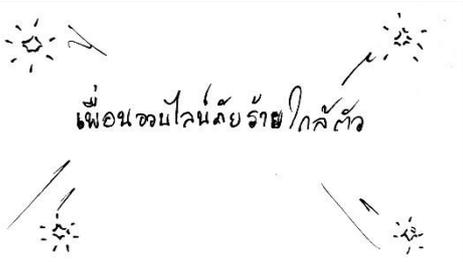 เพื่อนออนไลน์ภัยร้ายใกล้ตัว